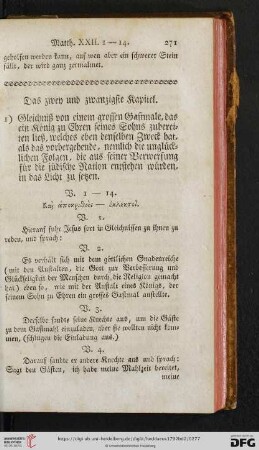 Matth. XXII. 1 — 14. 271
geholfen werden kann, auf wen aber ein schwerer Stein
fällt, der wird ganz zermalmet.
Das zwey und zwanzigste Kapitel.
1) Gleichniß von einem grossen Gastmale, das
ein König zu Ehren seines Sohns zuberei-
ten ließ, welches eben denselben Zweck hat,
als das vorhergehende, nemlich die unglück-
lichen Folgen, die aus seiner Verwerfung
für die jüdische Nation entstehen würden,
in das Licht zu setzen.
V. 1 — 14.
Και αποκριθεις — εκλεκτοι.
V. 1.
Hierauf fuhr Jesus fort in Gleichnissen zu ihnen zu
reden, und sprach:
V. 2.
Es verhält sich mit dem göttlichen Gnadenreiche
(mit den Anstalten, die Gott zur Verbesserung und
Glückseligkeit der Menschen durch die Religion gemacht
hat) eben so, wie mit der Anstalt eines Königs, der
seinem Sohn zu Ehren ein grosses Gastmal anstellte.
V. 3.
Derselbe sandte seine Knechte aus, um die Gäste
zu dem Gastmahl einzuladen, aber sie wollten nicht kom-
men, (schlugen die Einladung aus.)
V. 4.
Darauf sandte er andere Knechte aus und sprach:
Sagt den Gästen, ich habe meine Mahlzeit bereitet,
meine
UNIVERSITÄTS-
BIBLIOTHEK
HEIDELBERG
Gefördert durch die
DFG